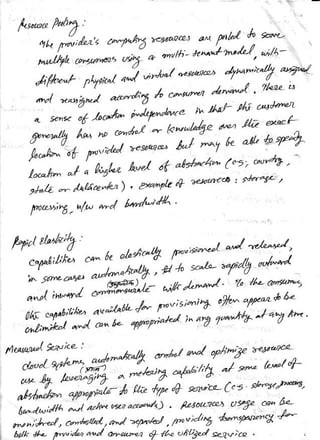 Resource Pooling :
The provider's computing resources are pooled to serve
multiple consumers using a multi-tenant model, with
different physical and virtual resources dynamically assigned
and reassigned according to consumer demand. There is
a sense of location independence in that the customer
generally has no control or knowledge over the exact
location of provided resources but may be able to specify
location at a higher level of abstraction (e.g., country,
state or datacenter). example of resources : storage,
processing, n/w and bandwidth.
Rapid Elasticity :
Capabilities can be elastically provisioned and released,
in some cases automatically, to scale rapidly outward
and inward commensurate with demand. To the consumer,
the capabilities available for provisioning often appear to be
unlimited and can be appropriated in any quantity at any time.
Measured Service :
cloud systems, automatically control and optimize resource
use by leveraging a metering capability at some level of
abstraction appropriate to the type of service (e.g. storage, process,
bandwidth and active user accounts). Resources usage can be
monitored, controlled, and reported, providing transparency for
both the provider and consumer of the utilized service.